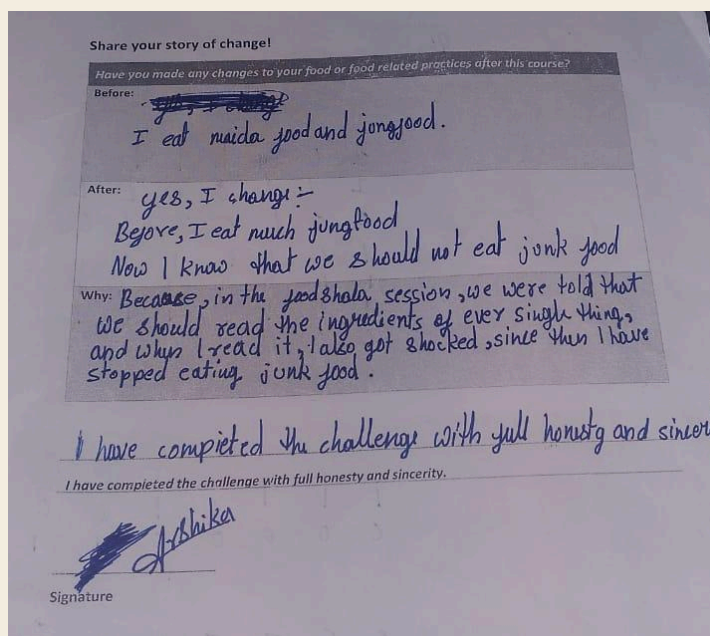 Share your story of change!
Have you made any changes to your food or food related practices after this course?
Before:
I eat maida food and jongfood.
After: yes, I change :-
Before, I eat much jungfood
Now I know that we should not eat junk food
Why: Because, in the foodshala session, we were told that
we should read the ingredients of ever single thing,
and when I read it, I also got shocked, since then I have
stopped eating junk food.
I have completed the challenge with full honesty and sincer
I have completed the challenge with full honesty and sincerity.
Arshika
Signature